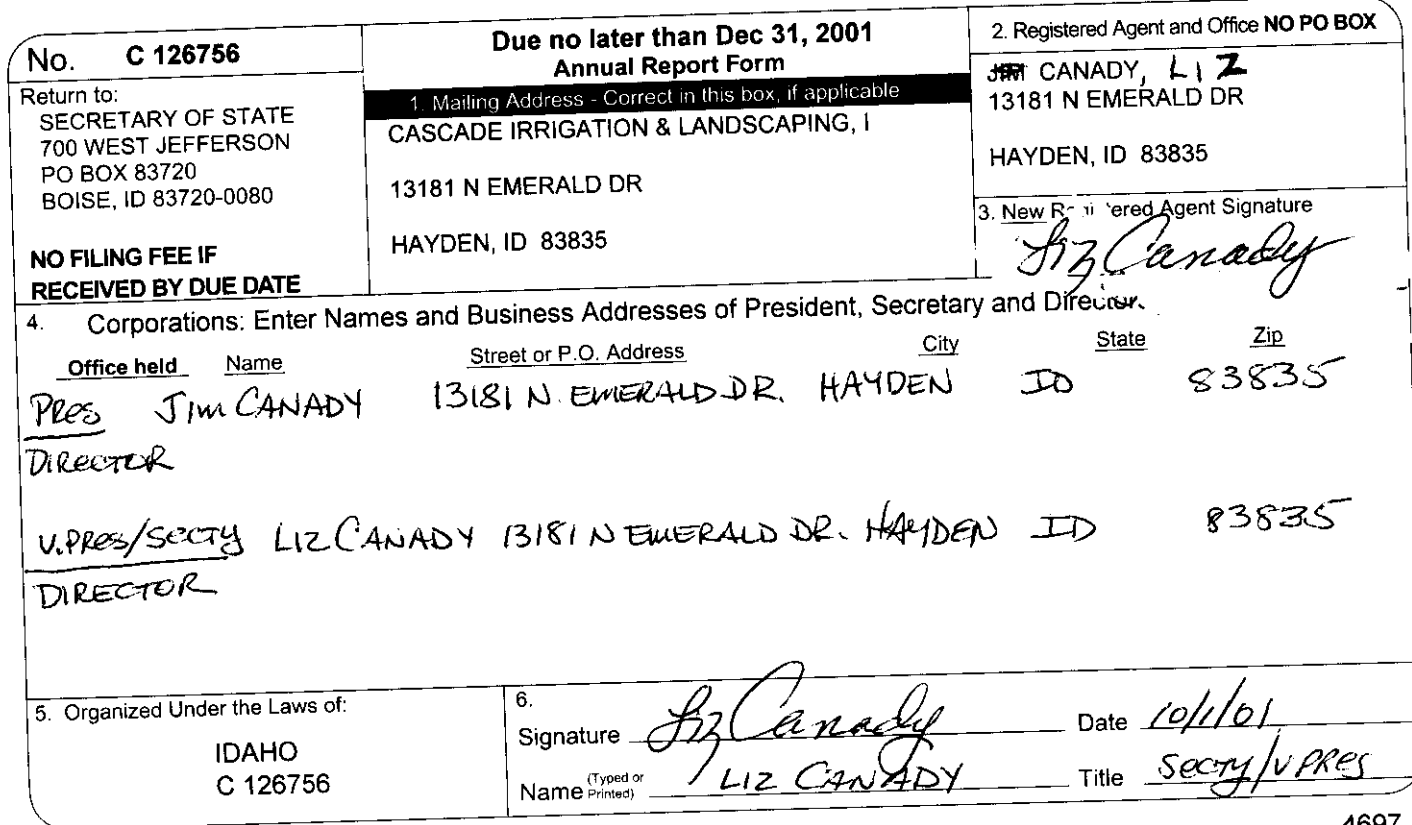 No. C 126756
Return to:
SECRETARY OF STATE
700 WEST JEFFERSON
PO BOX 83720
BOISE, ID 83720-0080
NO FILING FEE IF
RECEIVED BY DUE DATE
Due no later than Dec 31, 2001
Annual Report Form
1. Mailing Address - Correct in this box, if applicable
CASCADE IRRIGATION & LANDSCAPING, I
13181 N EMERALD DR
HAYDEN, ID 83835
2. Registered Agent and Office NO PO BOX
JIM CANADY, LIZ
13181 N EMERALD DR
HAYDEN, ID 83835
3. New Registered Agent Signature
Liz Canady
4. Corporations: Enter Names and Business Addresses of President, Secretary and Director.
Office held Name Street or P.O. Address City State Zip
PRES JIM CANADY 13181 N. EMERALD DR. HAYDEN ID 83835
DIRECTOR
V.PRES/SECTY LIZ CANADY 13181 N EMERALD DR. HAYDEN ID 83835
DIRECTOR
5. Organized Under the Laws of:
IDAHO
C 126756
6.
Signature Liz Canady Date 10/1/01
Name (Typed or Printed) LIZ CANADY Title SECTY/VPRES
4697